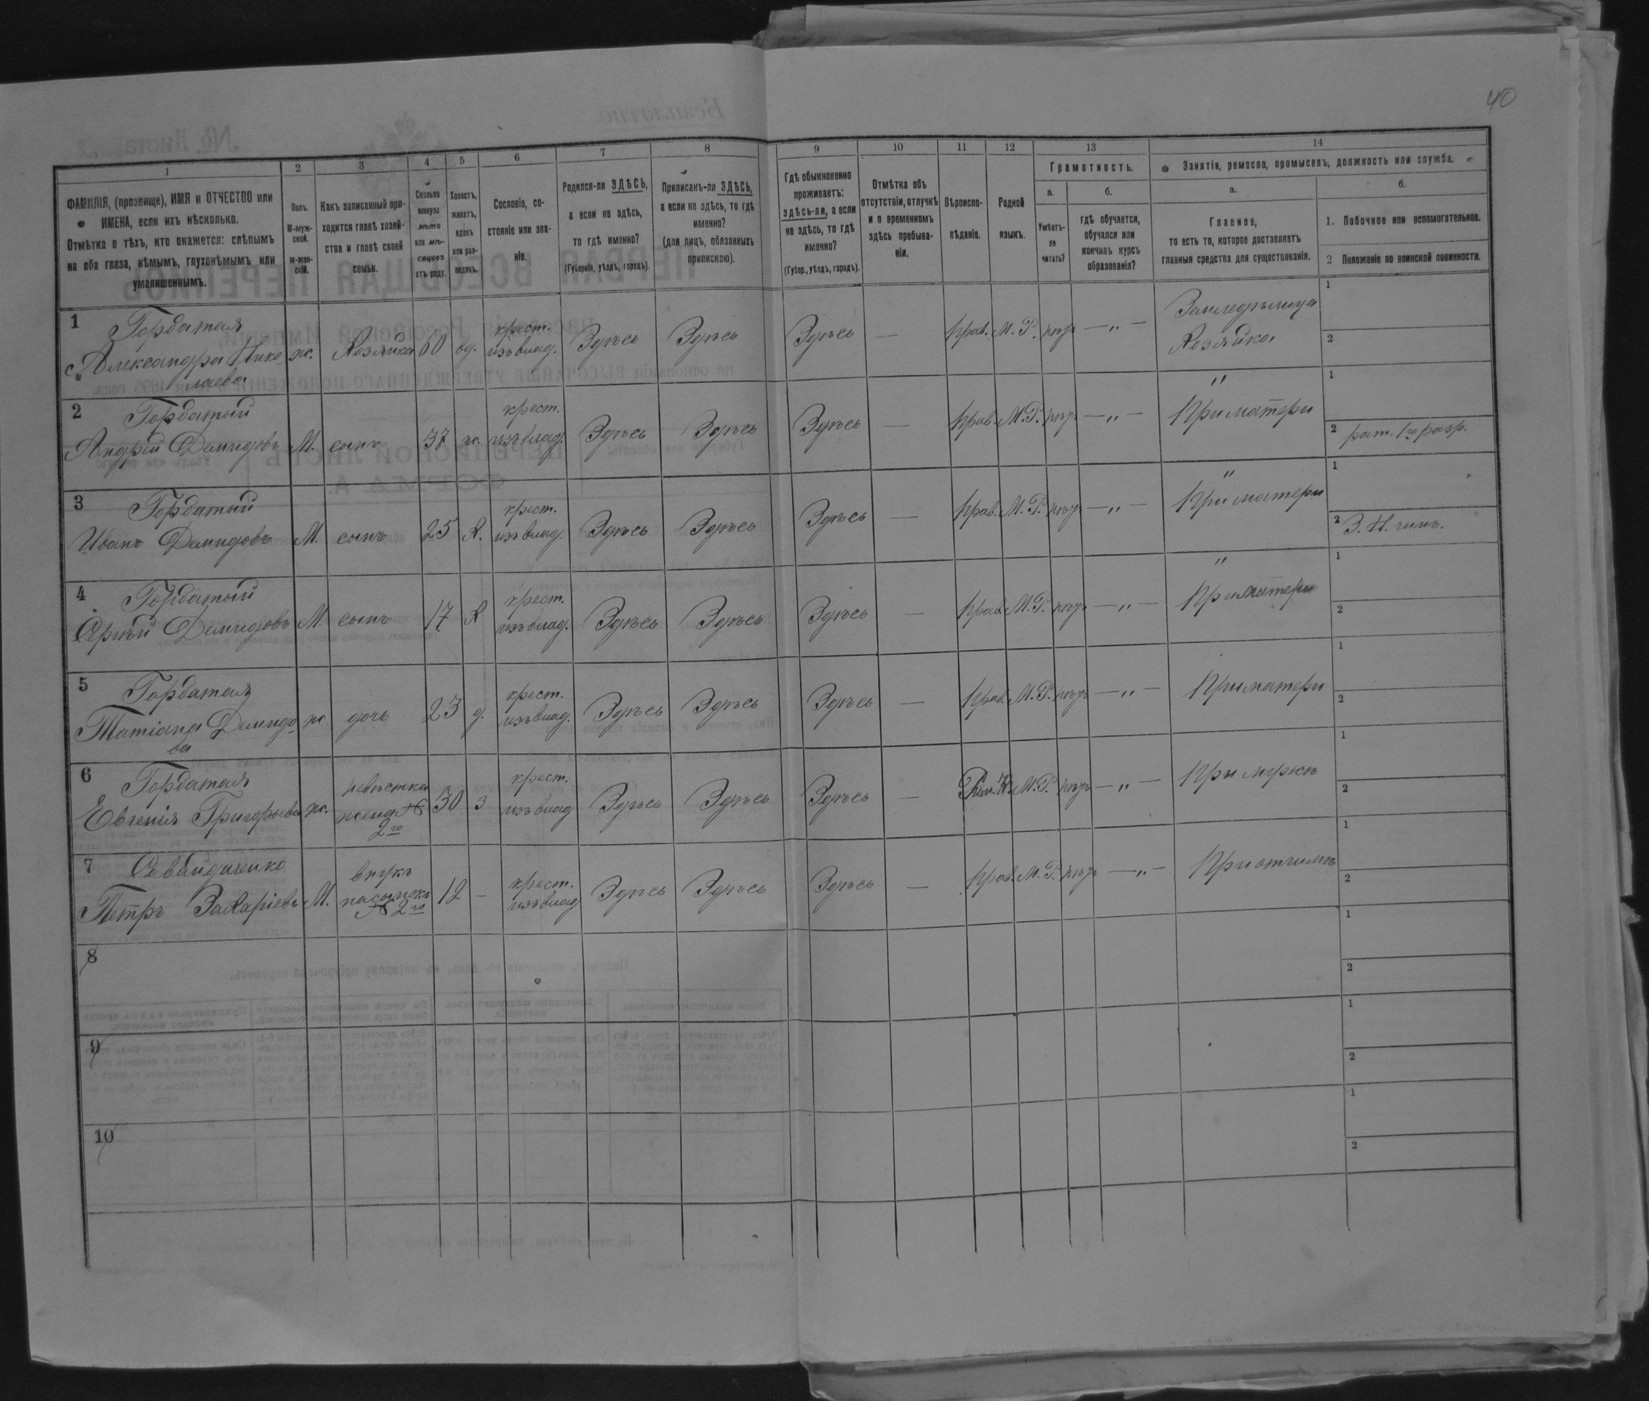 40
1
2
3
4
5
6
7
8
9
10
11
12
13
14
ФАМИЛІЯ, (прозвище), ИМЯ и ОТЧЕСТВО или
ИМЕНА, если ихъ нѣсколько.
Отмѣтка о тѣхъ, кто окажется: слѣпымъ
на оба глаза, нѣмымъ, глухонѣмымъ или
умалишеннымъ.
Полъ.
М-муж-
ской.
ж-жен-
скій.
Какъ записанный при-
ходится главѣ хозяй-
ства и главѣ своей
семьи.
Сколько
минуло
лѣтъ
или мѣ-
сяцевъ
отъ роду.
Холостъ,
женатъ,
вдовъ
или раз-
веденъ.
Сословіе, со-
стояніе или зва-
ніе.
Родился-ли ЗДѢСЬ,
а если не здѣсь,
то гдѣ именно?
(Губернія, уѣздъ, городъ).
Приписанъ-ли ЗДѢСЬ,
а если не здѣсь, то гдѣ
именно?
(для лицъ, обязанныхъ
припискою).
Гдѣ обыкновенно
проживаетъ:
здѣсь-ли, а если
не здѣсь, то гдѣ
именно?
(Губер., уѣздъ, городъ).
Отмѣтка объ
отсутствіи, отлучкѣ
и о временномъ
здѣсь пребыва-
ніи.
Вѣроиспо-
вѣданіе.
Родной
языкъ.
Грамотность.
а.
Умѣетъ-
ли
читать?
б.
гдѣ обучается,
обучался или
кончилъ курсъ
образованія?
Занятіе, ремесло, промыселъ, должность или служба.
а.
Главное,
то есть то, которое доставляетъ
главныя средства для существованія.
б.
1. Побочное или вспомогательное.
2 Положеніе по воинской повинности.
1 Горбатая Александра Нико лаева ж. Хозяйка 60 вд. крест. изъ влад. Здѣсь Здѣсь Здѣсь — Прав. М. Р. нѣт — „ — Земледѣлица Хозяйка 1 2
2 Горбатый Андрей Демидовъ М. сынъ 37 ж. крест. изъ влад. Здѣсь Здѣсь Здѣсь — Прав. М. Р. нѣт — „ — " При матери 1 2 рат. 1го разр.
3 Горбатый Иванъ Демидовъ М. сынъ 25 Х. крест. изъ влад. Здѣсь Здѣсь Здѣсь — Прав. М. Р. нѣт — „ — " При матери 1 2
4 Горбатый Демидовъ М сынъ 17 Х крест. изъ влад. Здѣсь Здѣсь Здѣсь — Прав. М. Р. нѣт — „ — " При матери 1 2
5 Горбатая Татіана Демидо ва ж. дочь 23 д. крест. изъ влад. Здѣсь Здѣсь Здѣсь — Прав. М. Р. нѣт — „ — При матери 1 2
6 Горбатая Евгенія Григорьева ж. невѣстка жена № 2го 30 з крест. изъ влад Здѣсь Здѣсь Здѣсь — М. Р. нѣт — „ — При мужѣ 1 2
7 Савайдаченко Петръ Захаріевъ М. внукъ пасынокъ № 2го 12 - крест. изъ влад Здѣсь Здѣсь Здѣсь — Прав. М. Р. нѣт — „ — При отчимѣ 1 2
8 1 2
9 1 2
10 1 2